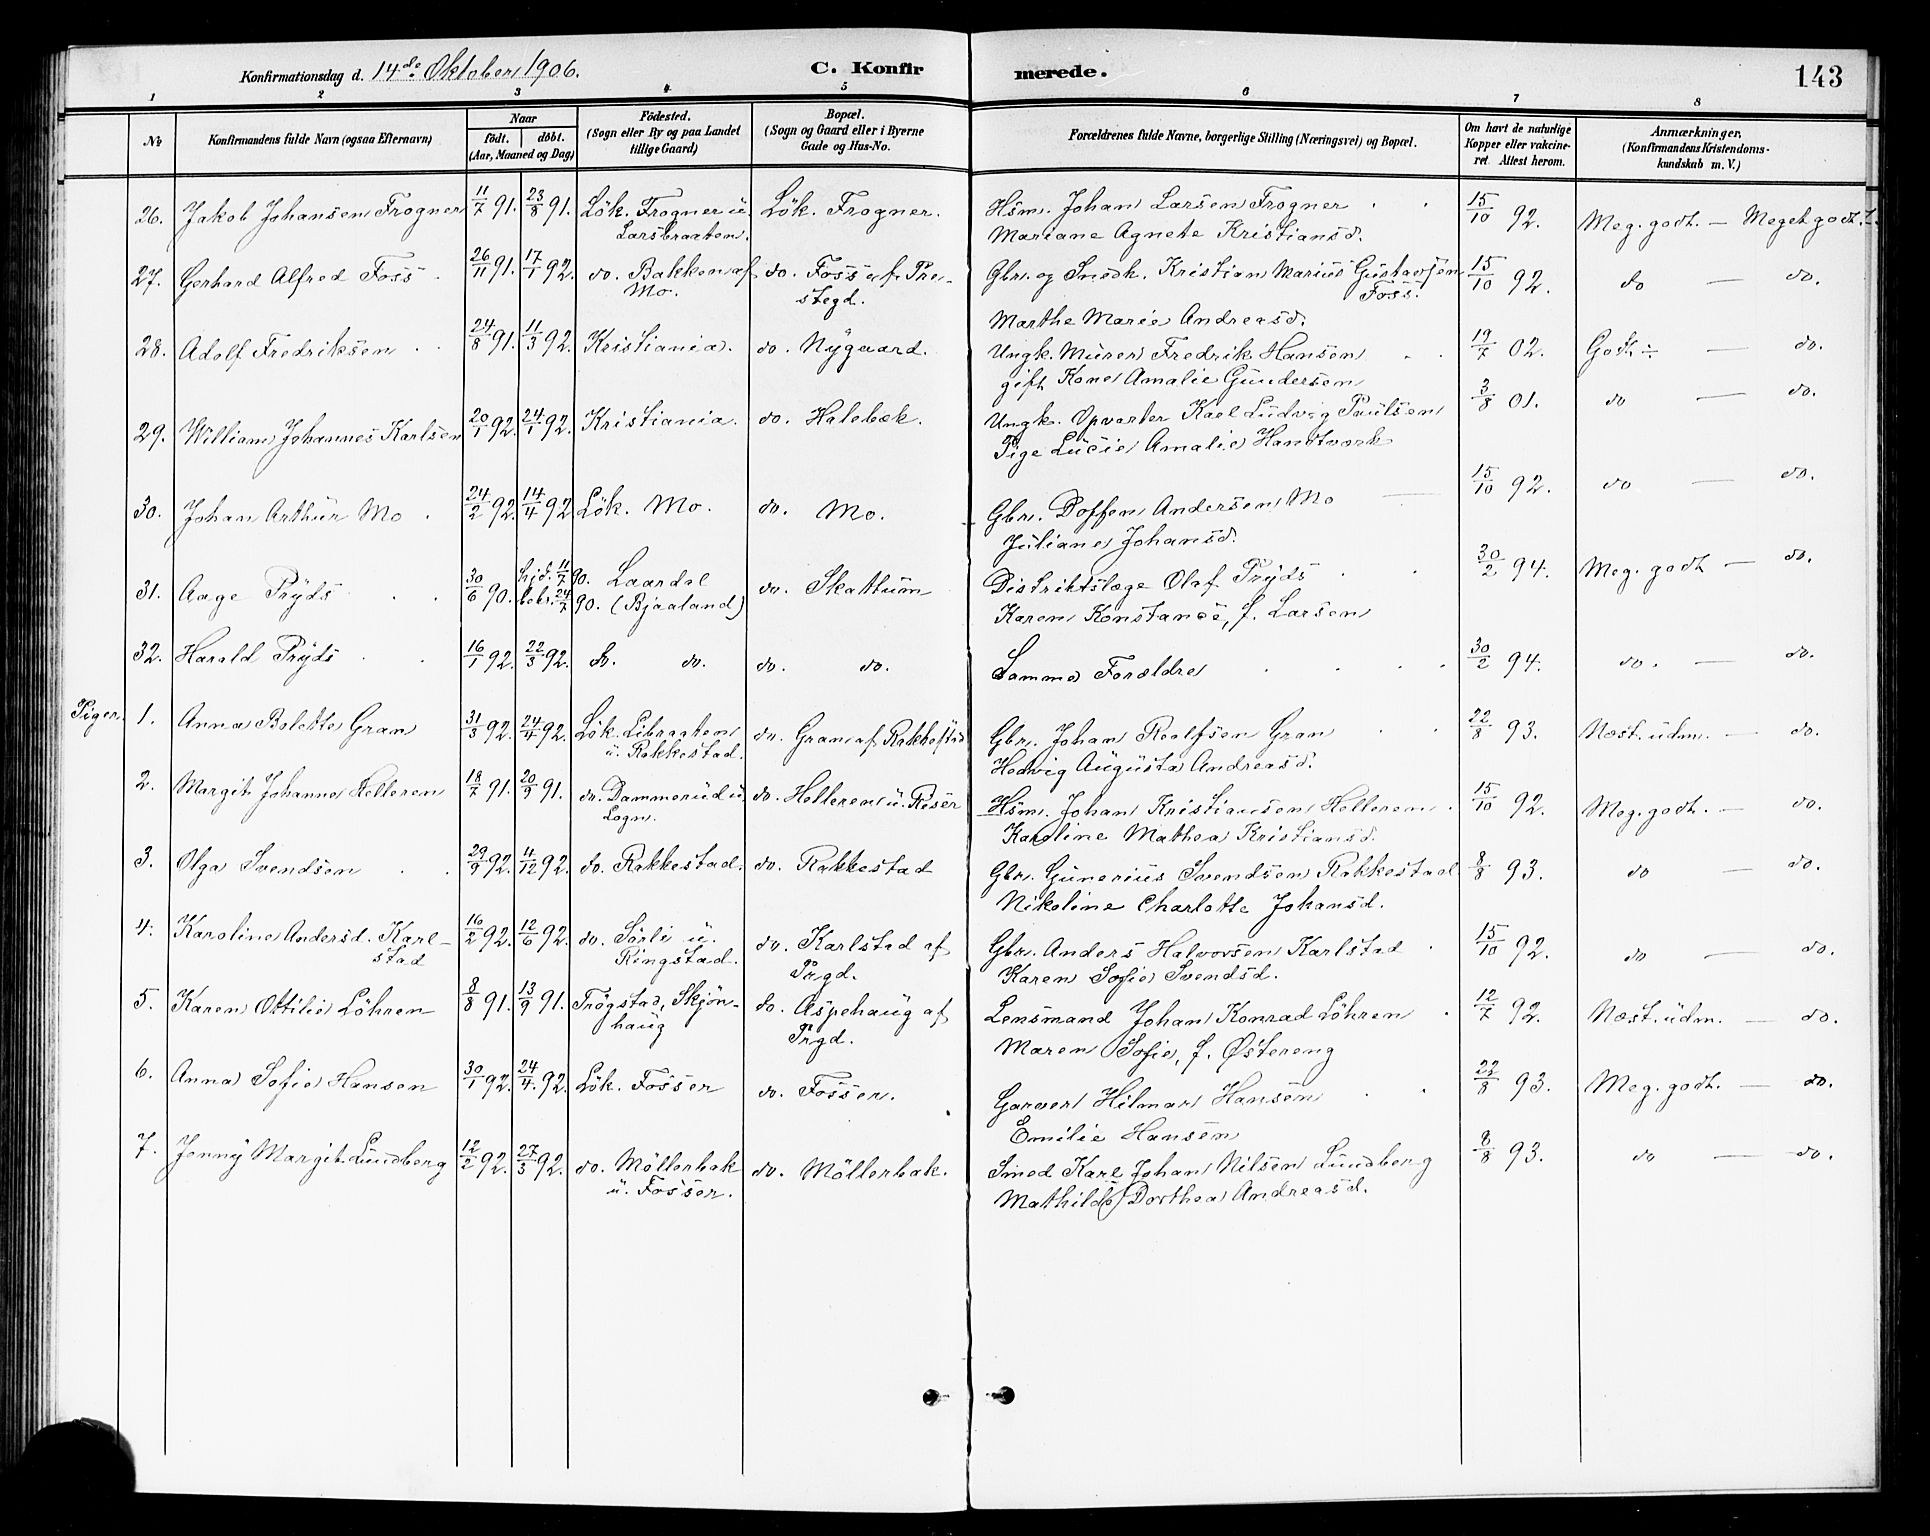 Konfirmationsdag d. 14de Oktober 1906.
C. Konfir
merede.
143
1 2 3 4 5 6 7 8
No
Konfirmandens fulde Navn (ogsaa Efternavn)
Naar
født. døbt.
(Aar, Maaned og Dag)
Fødested.
(Sogn eller By og paa Landet
tillige Gaard)
Bopæl.
(Sogn og Gaard eller i Byerne
Gade og Hus-No.
Forældrenes fulde Navne, borgerlige Stilling (Næringsvei) og Bopæl.
Om havt de naturlige
Kopper eller vakcine-
ret Attest herom.
Anmærkninger,
(Konfirmandens Kristendoms-
kundskab m. V.)
26. Jakob Johansen Frogner 11/7 91. 23/8 91. Lök. Frogner u. Lök. Frogner. Hsm. Johan Larsen Frogner 15/10 92. Meg. godt. — Meget godt.
Larsbraaten. Mariane Agnete Kristiansd.
27. Gerhard Alfred Foss 26/11 91. 17/1 92. do. Bakken af do. Foss af Pre- Gbr. og Snedk. Kristian Marius Gustavsen 15/10 92. do — do.
Mo. stegd. Foss.
Marthe Marie Andreasd.
28. Adolf Fredriksen 24/8 91. 11/3 92. Kristiania. do. Nygaard. Ungk. Murer Fredrik Hansen 19/7 02. Godt ÷ — do.
gift Kone Amalie Gundersen
29. William Johannes Karlsen 20/1 92. 24/1 92. Kristiania. do. Halebæk. Ungk. Opvarter Karl Ludvig Paulsen 3/8 01. do — do.
Pige Lucie Amalie Handtværk
30. Johan Arthur Mo 24/2 92. 14/4 92 Lök. Mo. do. Mo. Gbr. Doffen Andersen Mo 15/10 92. do — do.
Juliane Johansd.
31. Aage Pryds 30/6 90. hjd. 11/7 90. Laardal do. Skattum Distriktslæge Olaf Pryds 30/2 94. Meg. godt — do.
bekr. 24/7 90. (Bjaaland) Karen Konstance, f. Larsen
32. Harald Pryds 16/1 92. 22/3 92. do. do. do. do. Samme Forældre 30/2 94. do. — do.
Piger.
1. Anna Bolette Gran 31/3 92. 24/4 92. Lök. Libraaten do. Gran af Rakkestad Gbr. Johan Roolfsen Gran 22/8 93. Næst. udm. — do.
u. Rakkestad. Hedvig Augusta Andreasd.
2. Margit Johanne Helleren 18/7 91. 20/9 91. do. Dammerud u. do. Helleren u. Riser Hsm. Johan Kristiansen Helleren 15/10 92. Meg. godt. — do.
Logn. Karoline Mathea Kristiansd.
3. Olga Svendsen 29/9 92. 4/12 92. do. Rakkestad. do. Rakkestad Gbr. Gunerius Svendsen Rakkestad 8/8 93. do — do.
Nikoline Charlotte Johansd.
4. Karoline Andersd. Karl- 16/2 92. 12/6 92. do. Sørli u. do. Karlstad af Gbr. Anders Halvorsen Karlstad 15/10 92. do — do.
stad Ringstad. Prgd. Karen Sofie Svendsd.
5. Karen Ottilie Löhren 8/8 91. 13/9 91. Trøgstad, Skjøn- do. Aspehaug af Lensmand Johan Konrad Löhren 12/7 92. Næst. udm. — do.
haug Prgd. Maren Sofie, f. Østereng
6. Anna Sofie Hansen 30/1 92. 24/4 92. Lök. Fosser do. Fosser. Garver Hilmar Hansen 22/8 93. Meg. godt. — do.
Emilie Hansen
7. Jenny Margit Lundberg 12/2 92. 27/3 92. do. Möllerbak do. Möllerbak. Smed Karl Johan Nilsen Lundberg 8/8 93. do — do.
u. Fosser. Mathilde Dorthea Andreasd.